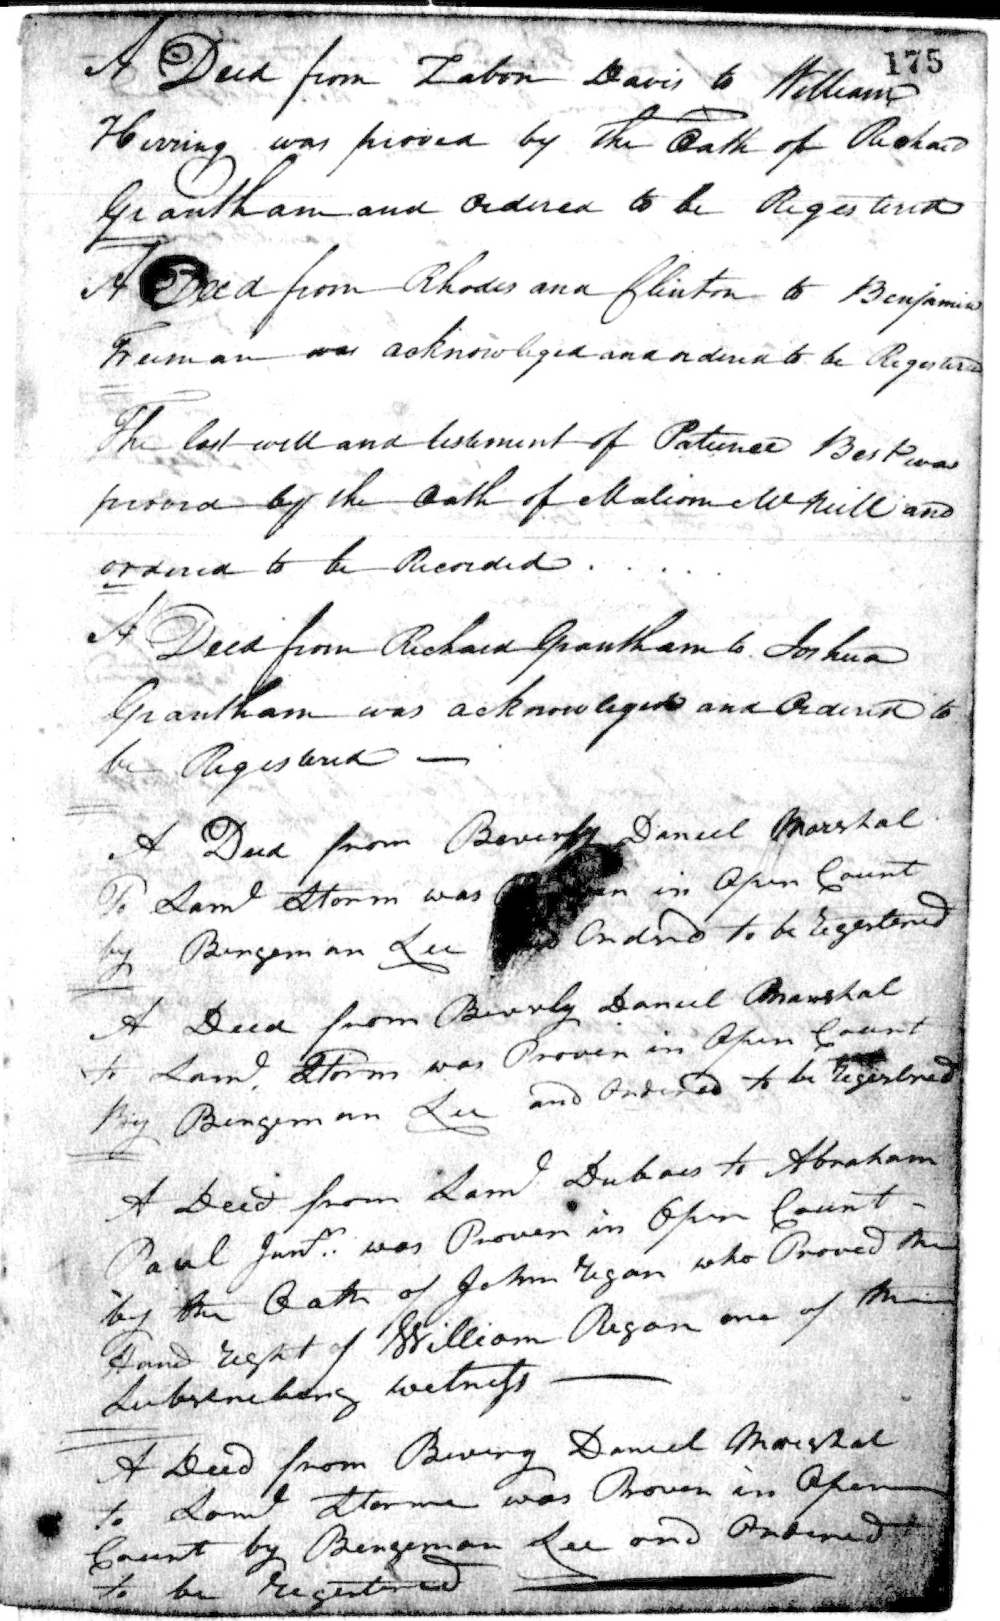 175
A Deed from Zabon Davis to William
Herring was proved by the Oath of Richard
Grantham and Ordered to be Regestered
A Deed from Rhodes and Clinton to Benjamin
Freeman was acknowleged and ordered to be Regestered
The last will and testement of Patience Best was
proved by the Oath of Malcom McNeill and
ordered to be Recorded . . . . .
A Deed from Richard Grantham to Joshua
Grantham was acknowleged and Ordered to
be Regestered —
A Deed from Beverly Daniel Marshal
To Saml Storm was in Open Court
by Bengeman Lee Ordred to be regestered
A Deed from Beverly Daniel Marshal
to Saml. Storm was Proven in Open Court
By Bengeman Lee and Ordered to be regestred
A Deed from Saml Dubois to Abraham
Paul Junr. was Proven in Open Court -
by the Oath of John regan who Proved the
Hand reght of William Regan one of the
Subscribeng wetness —
A Deed from Beverg Daniel Marshal
to Saml Storme was Proven in Open
Court by Bengeman Lee and Ordered
to be regestered —